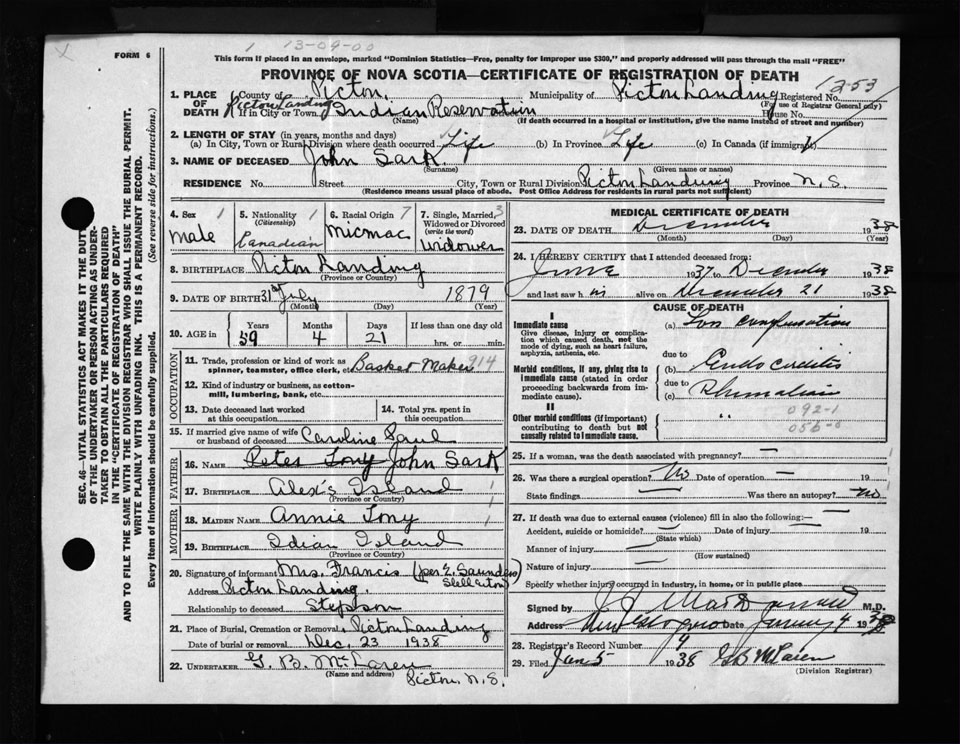 1 13-09-00
FORM 6
This form if placed in an envelope, marked "Dominion Statistics—Free, penalty for improper use $300," and properly addressed will pass through the mail "FREE"
PROVINCE OF NOVA SCOTIA—CERTIFICATE OF REGISTRATION OF DEATH
1. PLACE OF DEATH County of Picton. Municipality of Picton Landing Registered No. 1253
(For use of Registrar General only)
Picton Landing If in City or Town Indian Reservation House No.
(Name) (If death occurred in a hospital or institution, give the name instead of street and number)
2. LENGTH OF STAY (in years, months and days)
(a) In City, Town or Rural Division where death occurred Life (b) In Province Life (c) In Canada (if immigrant)
3. NAME OF DECEASED John Sark.
(Surname) (Given name or names)
RESIDENCE No. Street City, Town or Rural Division Picton Landing Province N.S.
(Residence means usual place of abode. Post Office Address for residents in rural parts not sufficient)
4. Sex 1 male
5. Nationality 1 (Citizenship) Canadian
6. Racial Origin 7 Micmac
7. Single, Married, 3 Widowed or Divorced (write the word) widower
8. BIRTHPLACE Picton Landing
(Province or County)
9. DATE OF BIRTH 31st July 1879
(Month) (Day) (Year)
10. AGE in Years Months Days If less than one day old
59 4 21 hrs. or min.
OCCUPATION
11. Trade, profession or kind of work as spinner, teamster, office clerk, etc. Basket Maker 914
12. Kind of industry or business, as cotton-mill, lumbering, bank, etc.
13. Date deceased last worked at this occupation
14. Total yrs. spent in this occupation
15. If married give name of wife or husband of deceased Caroline Paul
FATHER
16. NAME Peter Tony John Sark
17. BIRTHPLACE Alex's Island
(Province or Country)
MOTHER
18. MAIDEN NAME Annie Tony
19. BIRTHPLACE Idian Island
(Province or Country)
20. Signature of informant Mrs. Francis (per E. Saunders Stellarton)
Address Picton Landing.
Relationship to deceased Stepson
21. Place of Burial, Cremation or Removal Picton Landing
Date of burial or removal Dec. 23 1938
22. UNDERTAKER G. B. McLaren
(Name and address) Picton, N.S.
MEDICAL CERTIFICATE OF DEATH
23. DATE OF DEATH December 1938
(Month) (Day) (Year)
24. I HEREBY CERTIFY that I attended deceased from:
June 1937 December 1938
and last saw him alive on December 21 1938
CAUSE OF DEATH
I
Immediate cause
Give disease, injury or complication which caused death, not the mode of dying, such as heart failure, asphyxia, asthenia, etc.
(a)
due to
Morbid conditions, if any, giving rise to immediate cause (stated in order proceeding backwards from immediate cause).
(b) Endocarditis
due to
(c)
II
Other morbid conditions (if important) contributing to death but not causally related to immediate cause.
"
092-1
056-0
25. If a woman, was the death associated with pregnancy? —
26. Was there a surgical operation? No Date of operation — 19
State findings — Was there an autopsy? no
27. If death was due to external causes (violence) fill in also the following:—
Accident, suicide or homicide? — Date of injury — 19
(State which)
Manner of injury —
(How sustained)
Nature of injury —
Specify whether injury occurred in industry, in home, or in public place
Signed by M.D.
Address New Glasgow Date January 4 19
28. Registrar's Record Number 4
29. Filed Jan 5 1938 G B McLaren
(Division Registrar)
SEC. 46—VITAL STATISTICS ACT MAKES IT THE DUTY
OF THE UNDERTAKER OR PERSON ACTING AS UNDER-
TAKER TO OBTAIN ALL THE PARTICULARS REQUIRED
IN THE "CERTIFICATE OF REGISTRATION OF DEATH"
AND TO FILE THE SAME WITH THE DIVISION REGISTRAR WHO SHALL ISSUE THE BURIAL PERMIT.
WRITE PLAINLY WITH UNFADING INK. THIS IS A PERMANENT RECORD.
Every item of information should be carefully supplied. (See reverse side for instructions.)